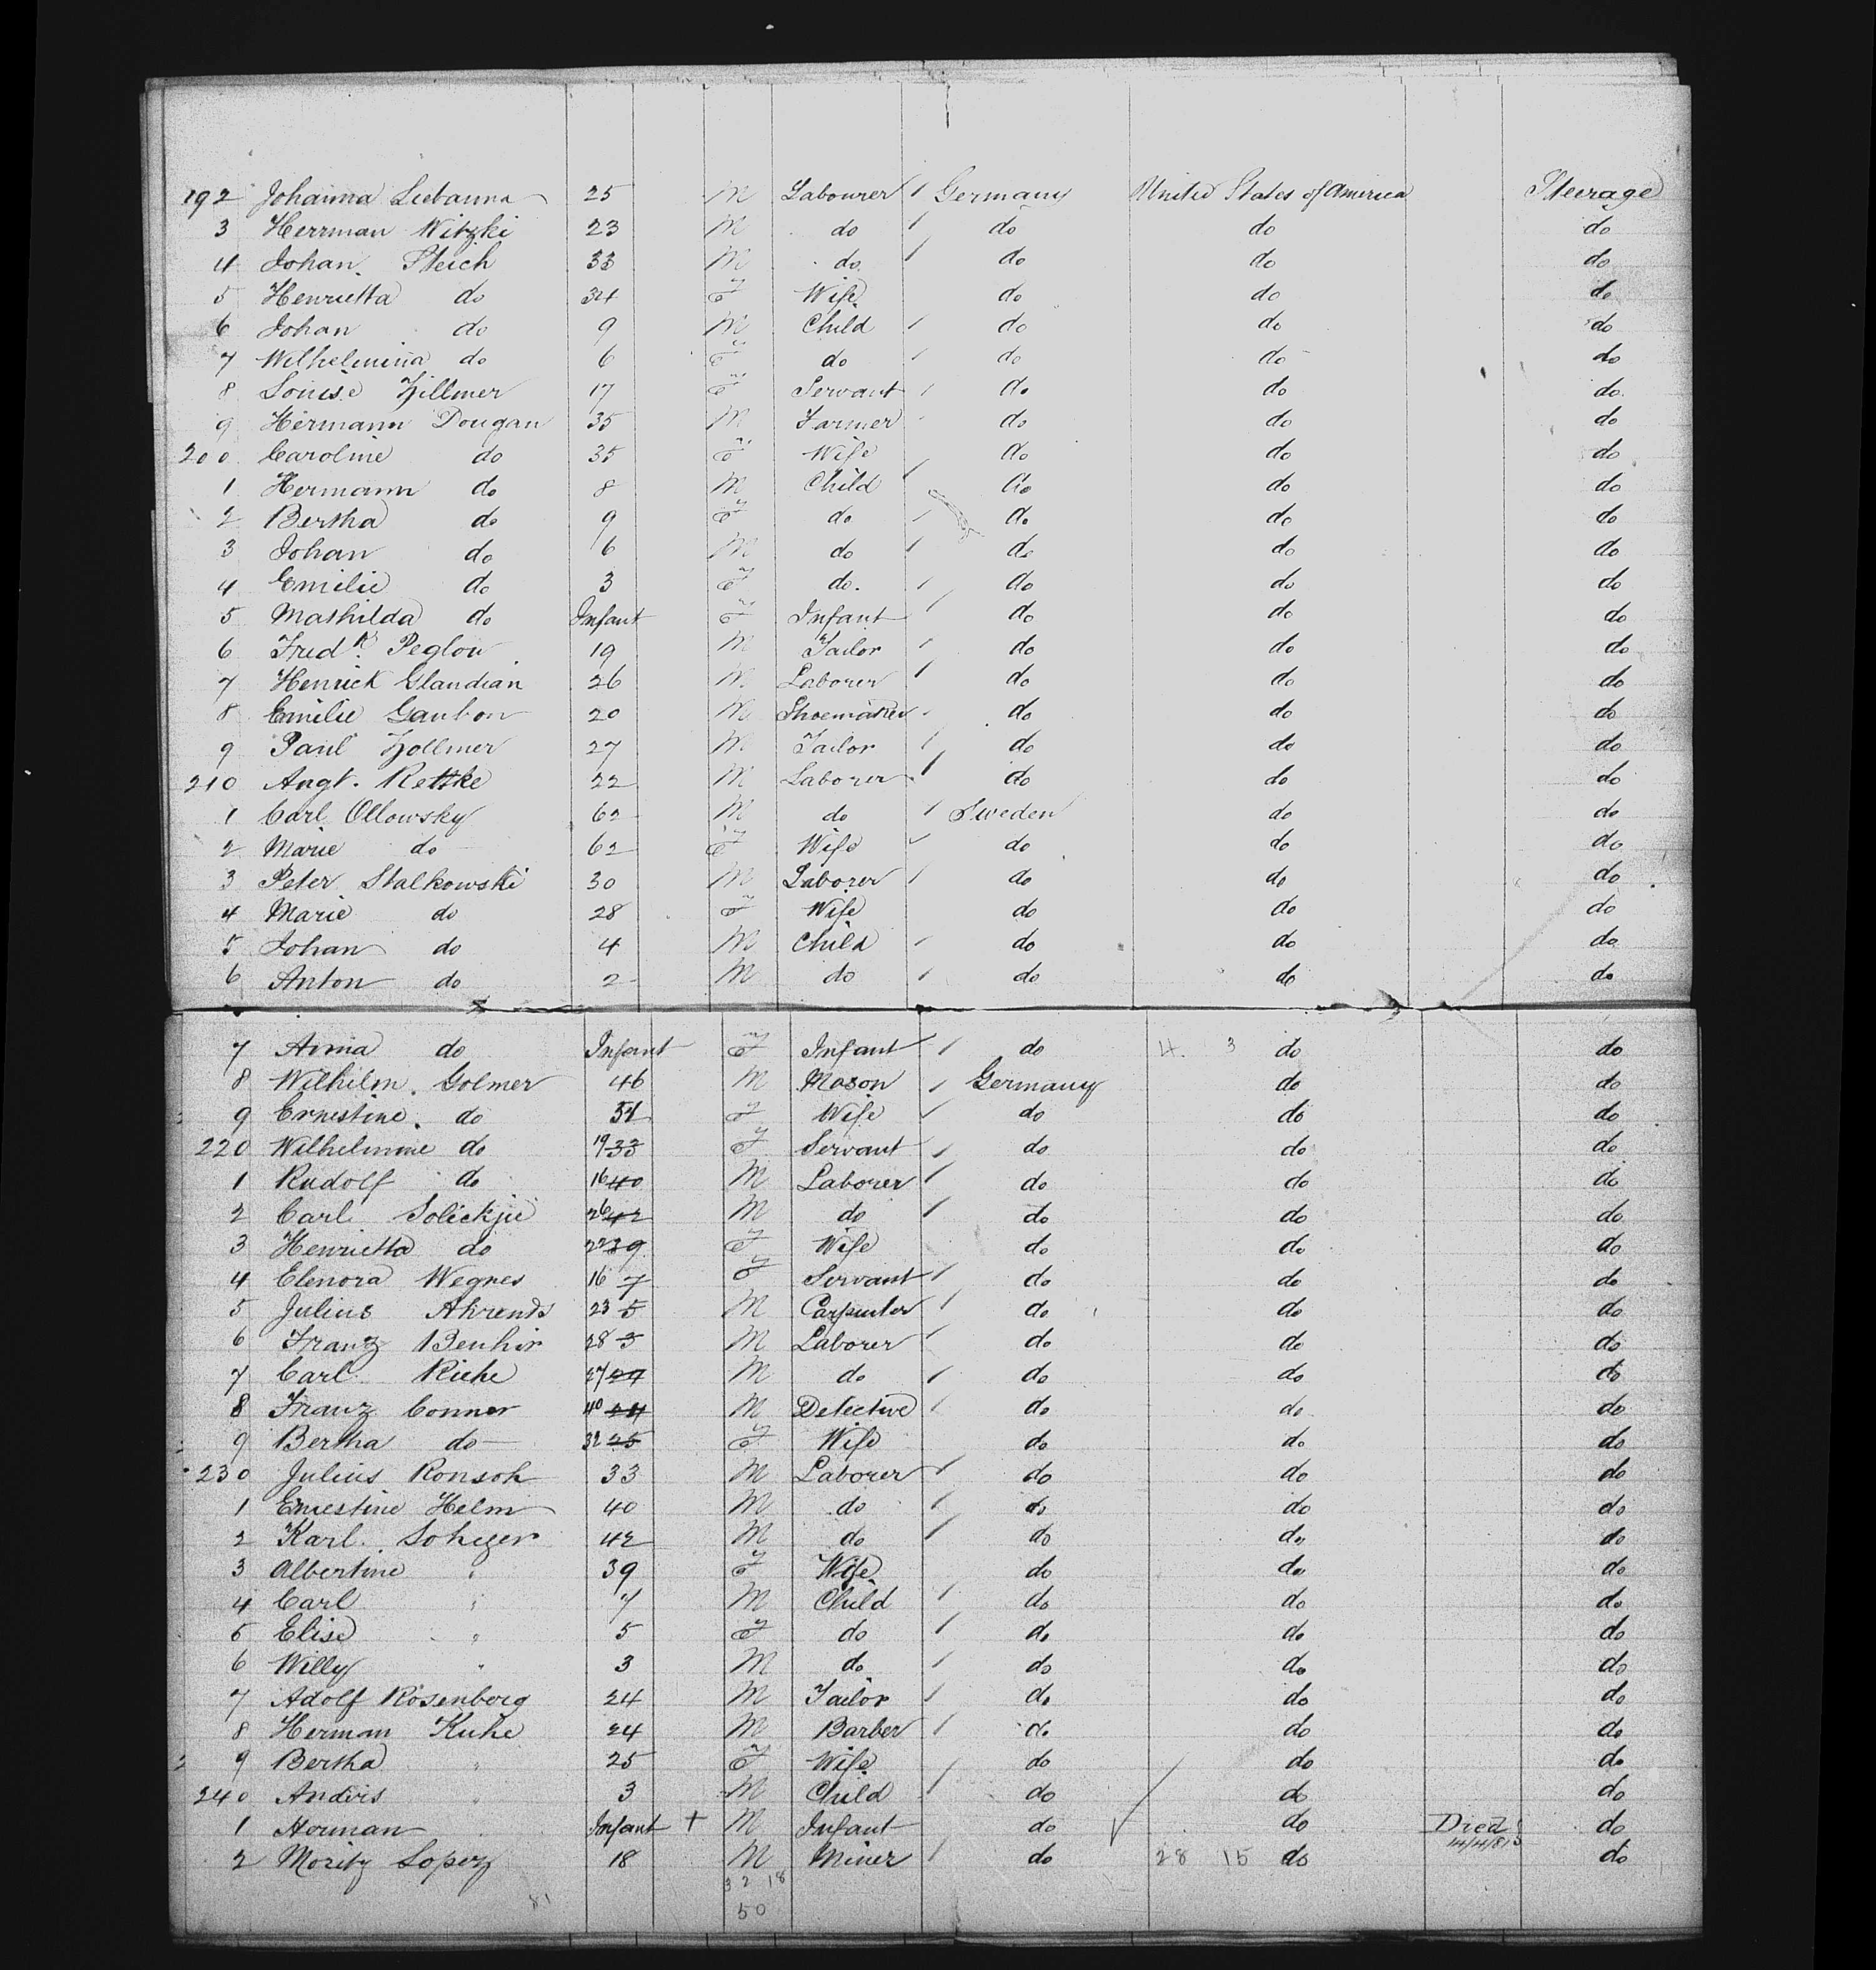 192 Johanna Liebanna 25 M Labourer Germany United States of America Steerage
3 Herrman Witzki 23 M do do do do
4 Johan Steich 33 M do do do do
5 Henrietta do 34 F Wife do do do
6 Johan do 9 M Child do do do
7 Wilhelmina do 6 F do do do do
8 Louise Zillmer 17 F Servant do do do
9 Hermann Dougan 35 M Farmer do do do
200 Caroline do 35 F Wife do do do
1 Hermann do 8 M Child do do do
2 Bertha do 9 F do do do do
3 Johan do 6 M do do do do
4 Emilie do 3 F do. do do do
5 Mathilda do Infant F Infant do do do
6 Fredk. Peglow 19 M Tailor do do do
7 Henrick Glandian 26 M Laborer do do do
8 Emilie Gaubon 20 M Shoemaker do do do
9 Paul Zollmer 27 M Tailor do do do
210 Augt. Rettke 22 M Laborer do do do
1 Carl Ollowsky 62 M do Sweden do do
2 Marie do 62 F Wife do do do
3 Peter Stalkowski 30 M Laborer do do do
4 Marie do 28 F Wife do do do
5 Johan do 4 M Child do do do
6 Anton do 2 M do do do do
7 Anna do Infant F Infant do 4. 3 do do
8 Wilhelm Golmer 46 M Mason Germany do do
9 Ernestine do 51 F Wife do do do
220 Wilhelmine do 19 33 F Servant do do do
1 Rudolf do 16 40 M Laborer do do do
2 Carl Solickjie 26 42 M do do do do
3 Henrietta do 22 39 F Wife do do do
4 Elenora Wegnes 16 7 F Servant do do do
5 Julius Ahrends 23 5 M Carpenter do do do
6 Franz Benhir 28 3 M Laborer do do do
7 Carl Riehe 27 24 M do do do do
8 Franz Conner 40 24 M Detective do do do
9 Bertha do 32 25 F Wife do do do
230 Julius Ronsoh 33 M Laborer do do do
1 Ernestine Helm 40 M do do do do
2 Karl Soheger 42 M do do do do
3 Albertine " 39 F Wife do do do
4 Carl " 7 M Child do do do
5 Elise " 5 F do do do do
6 Willy " 3 M do do do do
7 Adolf Rosenberg 24 M Tailor do do do
8 Herman Kuhe 24 M Barber do do do
9 Bertha " 25 F Wife do do do
240 Andris " 3 M Child do do do
1 Herman Infant + M Infant do do Died do
14/4/81
2 Moritz Lopez 18 M Miner do 28 15 do do
32 18
81 50